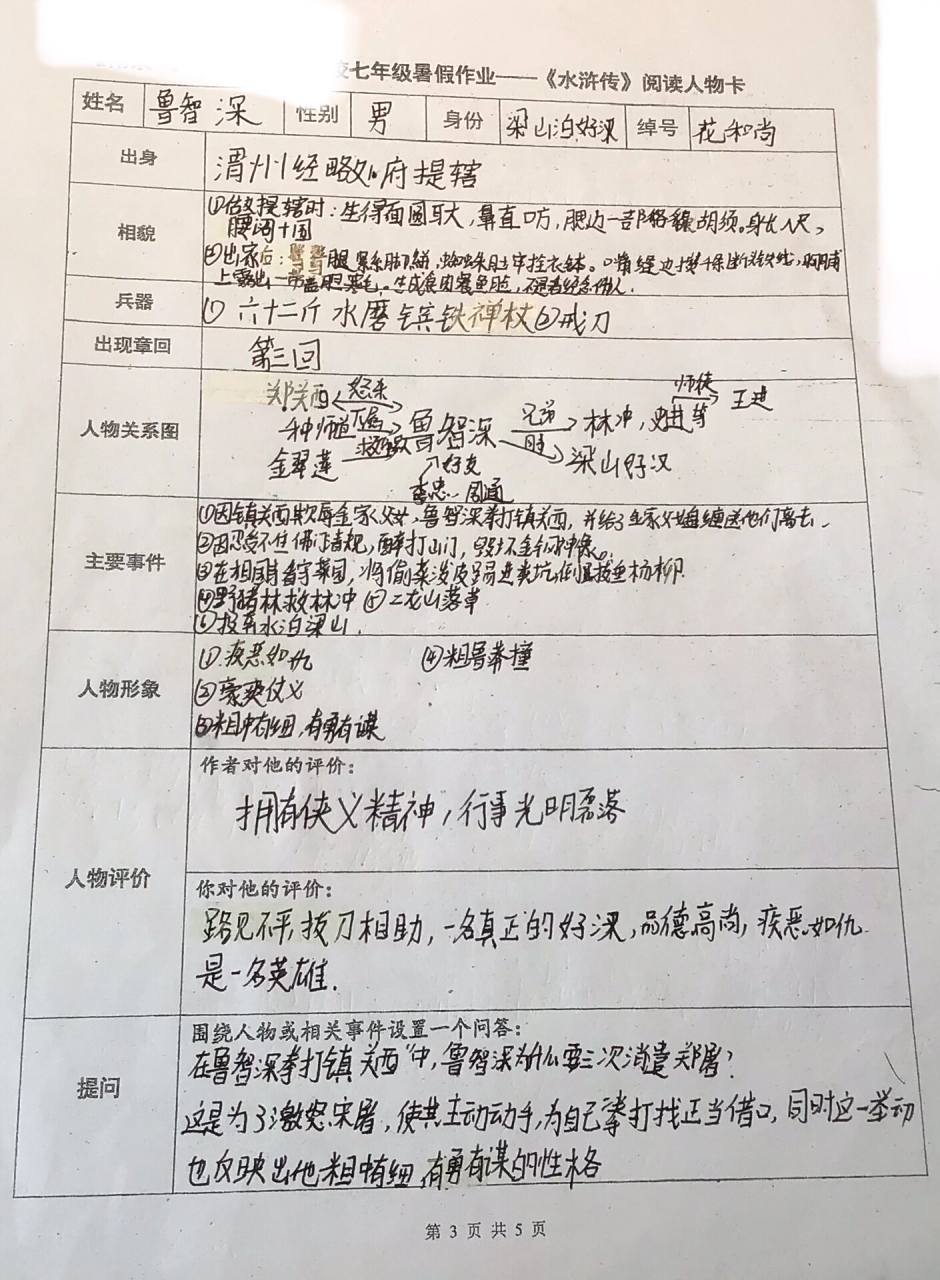 校七年级暑假作业——《水浒传》阅读人物卡
姓名 鲁智深 性别 男 身份 梁山泊好汉 绰号 花和尚
出身 渭州经略府提辖
相貌
①做提辖时：生得面圆耳大，鼻直口方，腮边一部络腮胡须。身长八尺，
腰阔十围
②出家后：
上露出一带盖胆寒毛。生成食肉餐鱼脸，不是看经念佛人.
兵器 ①六十二斤水磨镔铁禅杖②戒刀
出现章回 第三回
人物关系图
郑关西 怒杀 师徒 王进
种师道 下属 鲁智深 兄弟 林冲，史进等
金翠莲 同 梁山好汉
好友
李忠 周通
主要事件
①因镇关西欺辱金家父女，鲁智深拳打镇关西，并给了金家父女盘缠送他们离去.
②因忍受不住佛门清规，醉打山门，毁坏金刚神像。
③在相国寺看守菜园，将偷菜泼皮踢进粪坑，倒拔垂杨柳.
④野猪林救林冲 ⑤二龙山落草
⑥投奔水泊梁山.
人物形象
①疾恶如仇 ④粗鲁莽撞
②豪爽仗义
③粗中有细，有勇有谋
人物评价
作者对他的评价：
拥有侠义精神，行事光明磊落
你对他的评价：
路见不平，拔刀相助，一名真正的好汉，品德高尚，疾恶如仇.
是一名英雄.
提问
围绕人物或相关事件设置一个问答：
在鲁智深拳打镇关西"中，鲁智深为什么要三次消遣郑屠？
这是为了激怒宋屠，使其主动动手，为自己拳打找正当借口，同时这一举动
也反映出他粗中有细，有勇有谋的性格
第 3 页 共 5 页